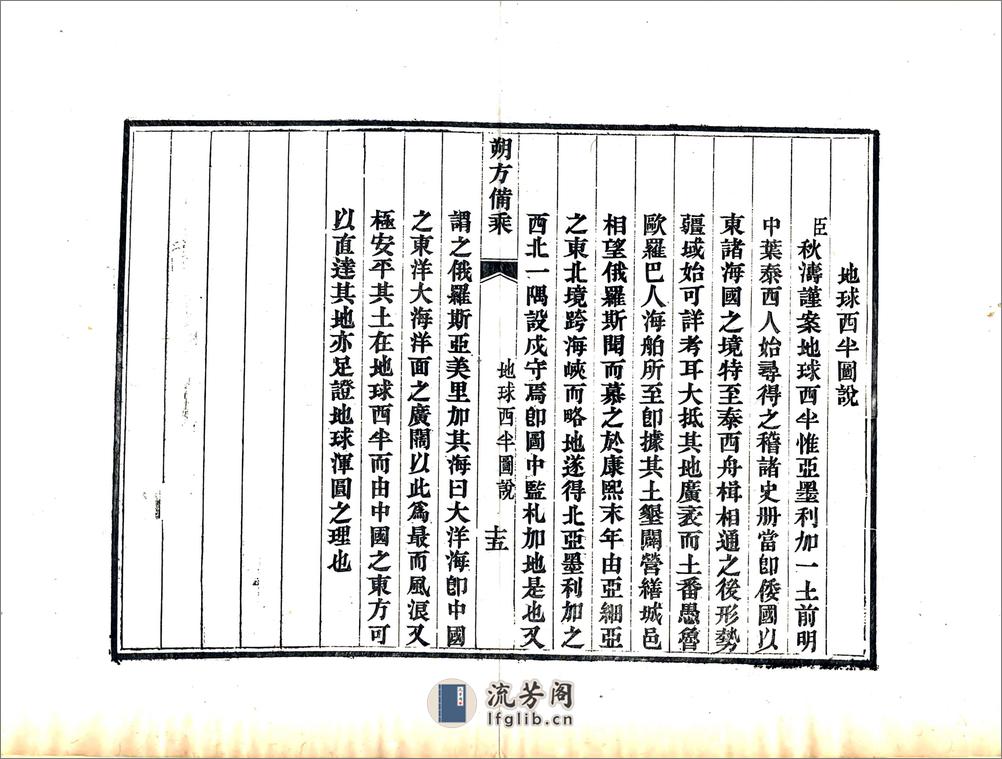 地球西半圖說
臣秋濤謹案地球西半惟亞墨利加一土前明
中葉泰西人始尋得之稽諸史册當卽倭國以
東諸海國之境特至泰西舟楫相通之後形勢
疆域始可詳考耳大抵其地廣袤而土番愚魯
歐羅巴人海舶所至卽據其土墾闢營繕城邑
相望俄羅斯聞而慕之於康熙末年由亞細亞
之東北境跨海峽而略地遂得北亞墨利加之
西北一隅設戍守焉卽圖中監札加地是也又
朔方備乘
地球西半圖說
十五
謂之俄羅斯亞美里加其海曰大洋海卽中國
之東洋大海洋面之廣闊以此爲最而風浪又
極安平其土在地球西半而由中國之東方可
以直達其地亦足證地球渾圓之理也
流芳阁
lfglib.cn